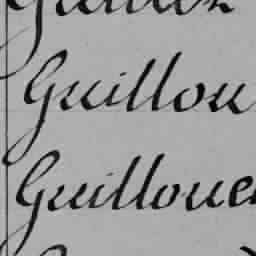 Guillou
Guilloue